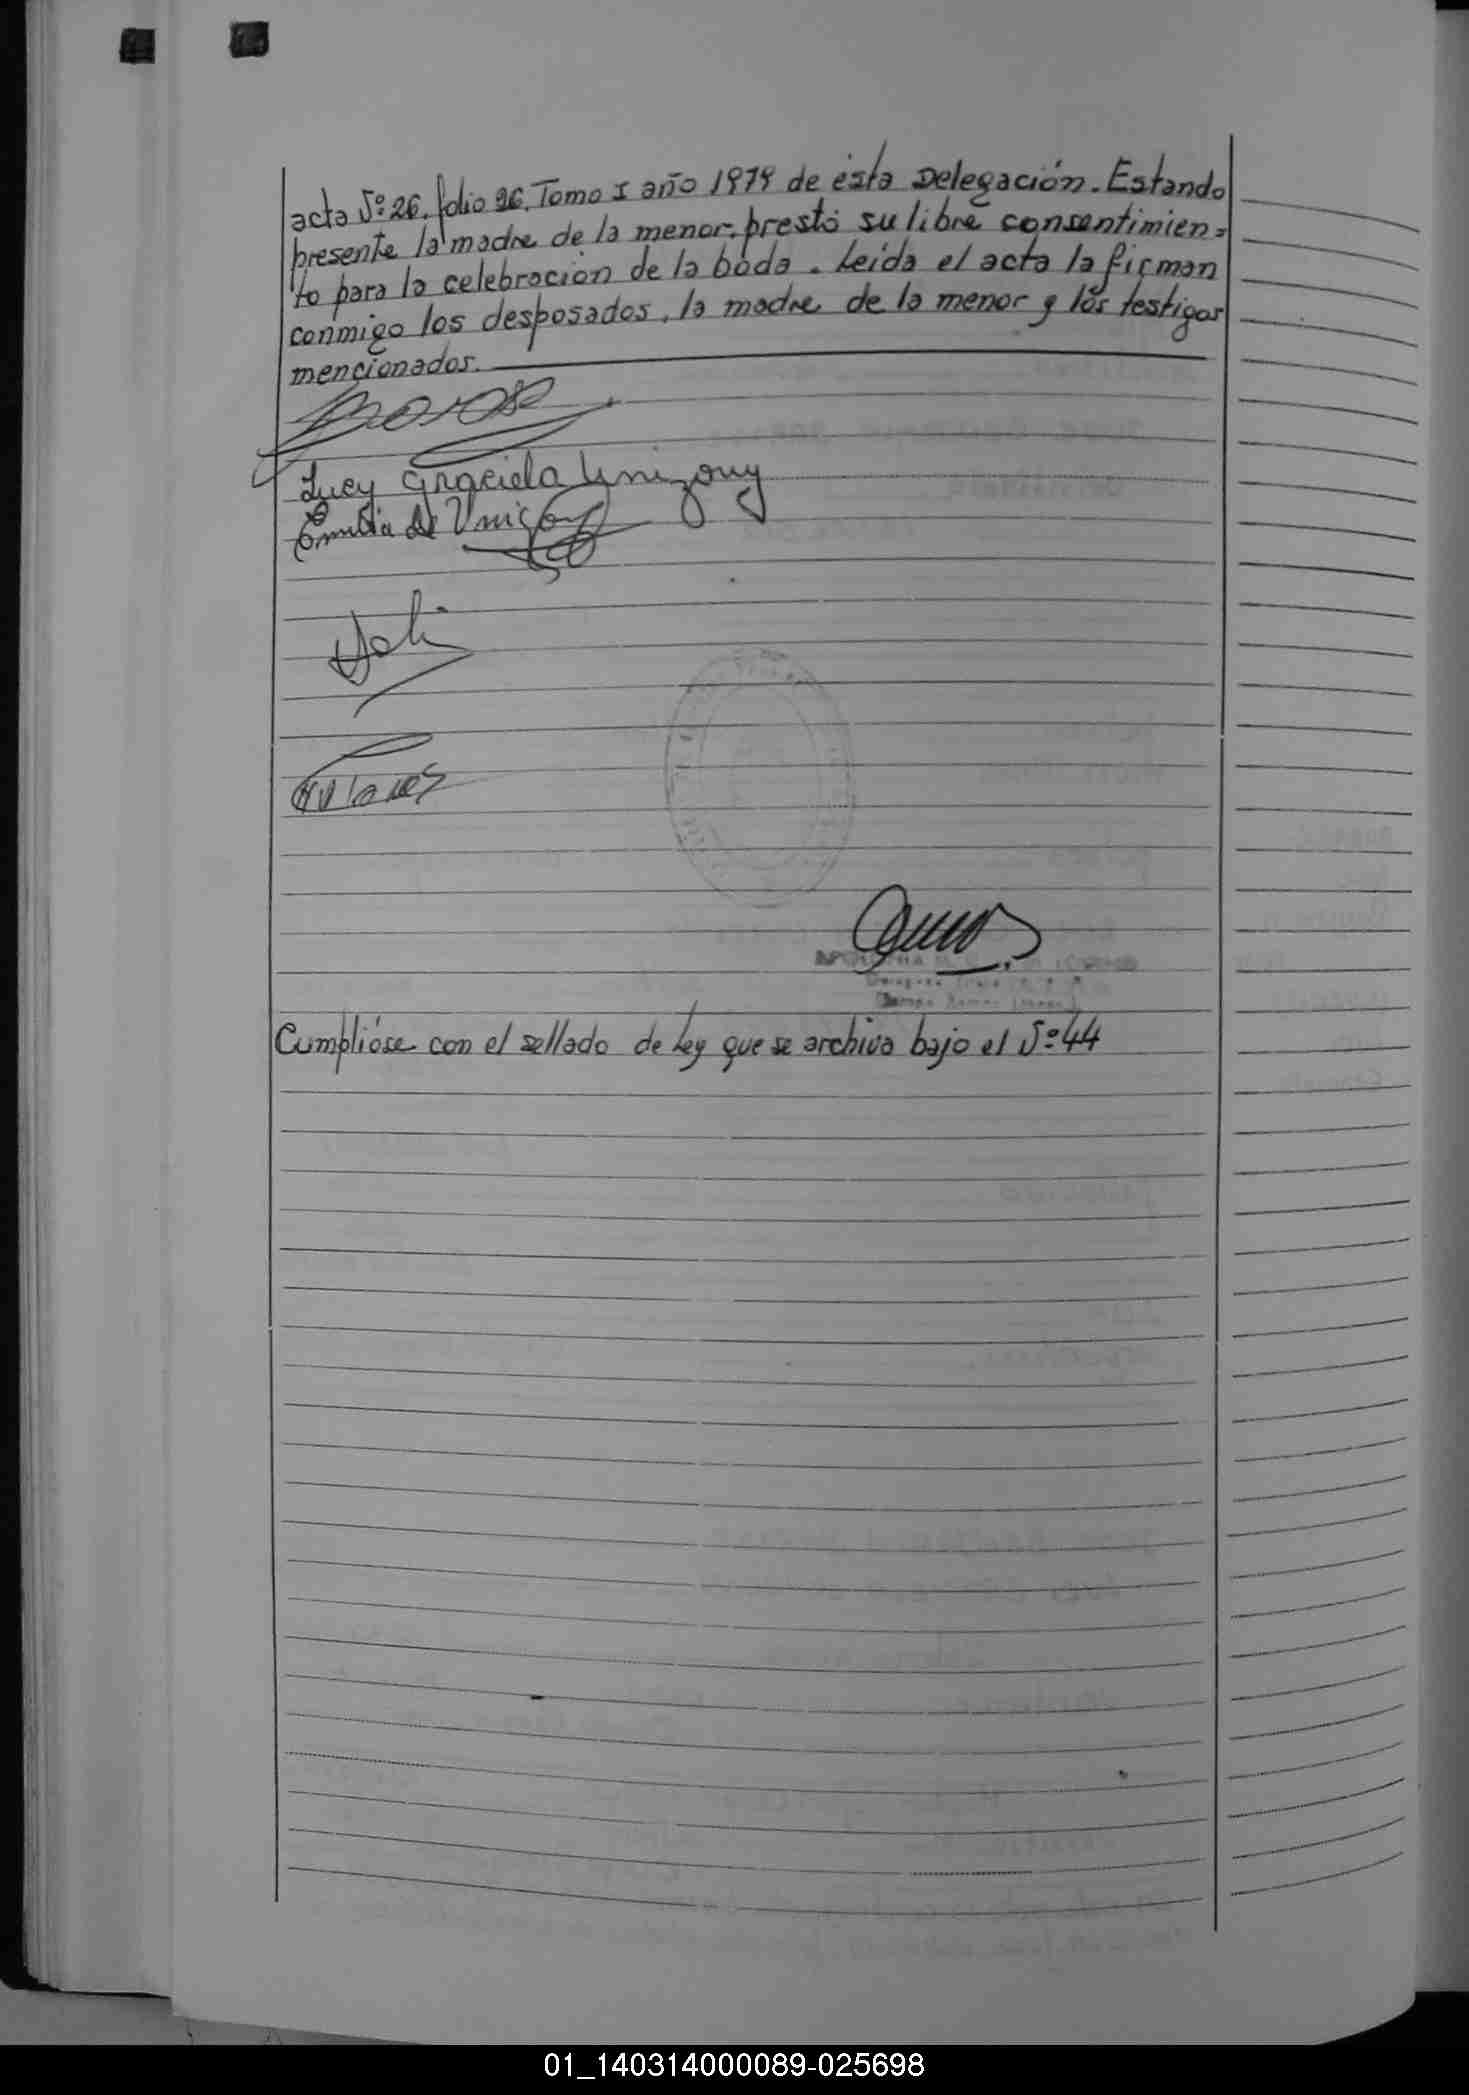 acta Nº 26. folio 26. Tomo I año 1979 de ésta Delegación. Estando
presente la madre de la menor, prestó su libre consentimien=
to para la celebración de la boda. Leída el acta la firman
conmigo los desposados, la madre de la menor y los testigos
mencionados.
Lucy Graciela Unizony
Emilia de Unizony
Cumplióse con el sellado de Ley que se archiva bajo el Nº 44
01_140314000089-025698